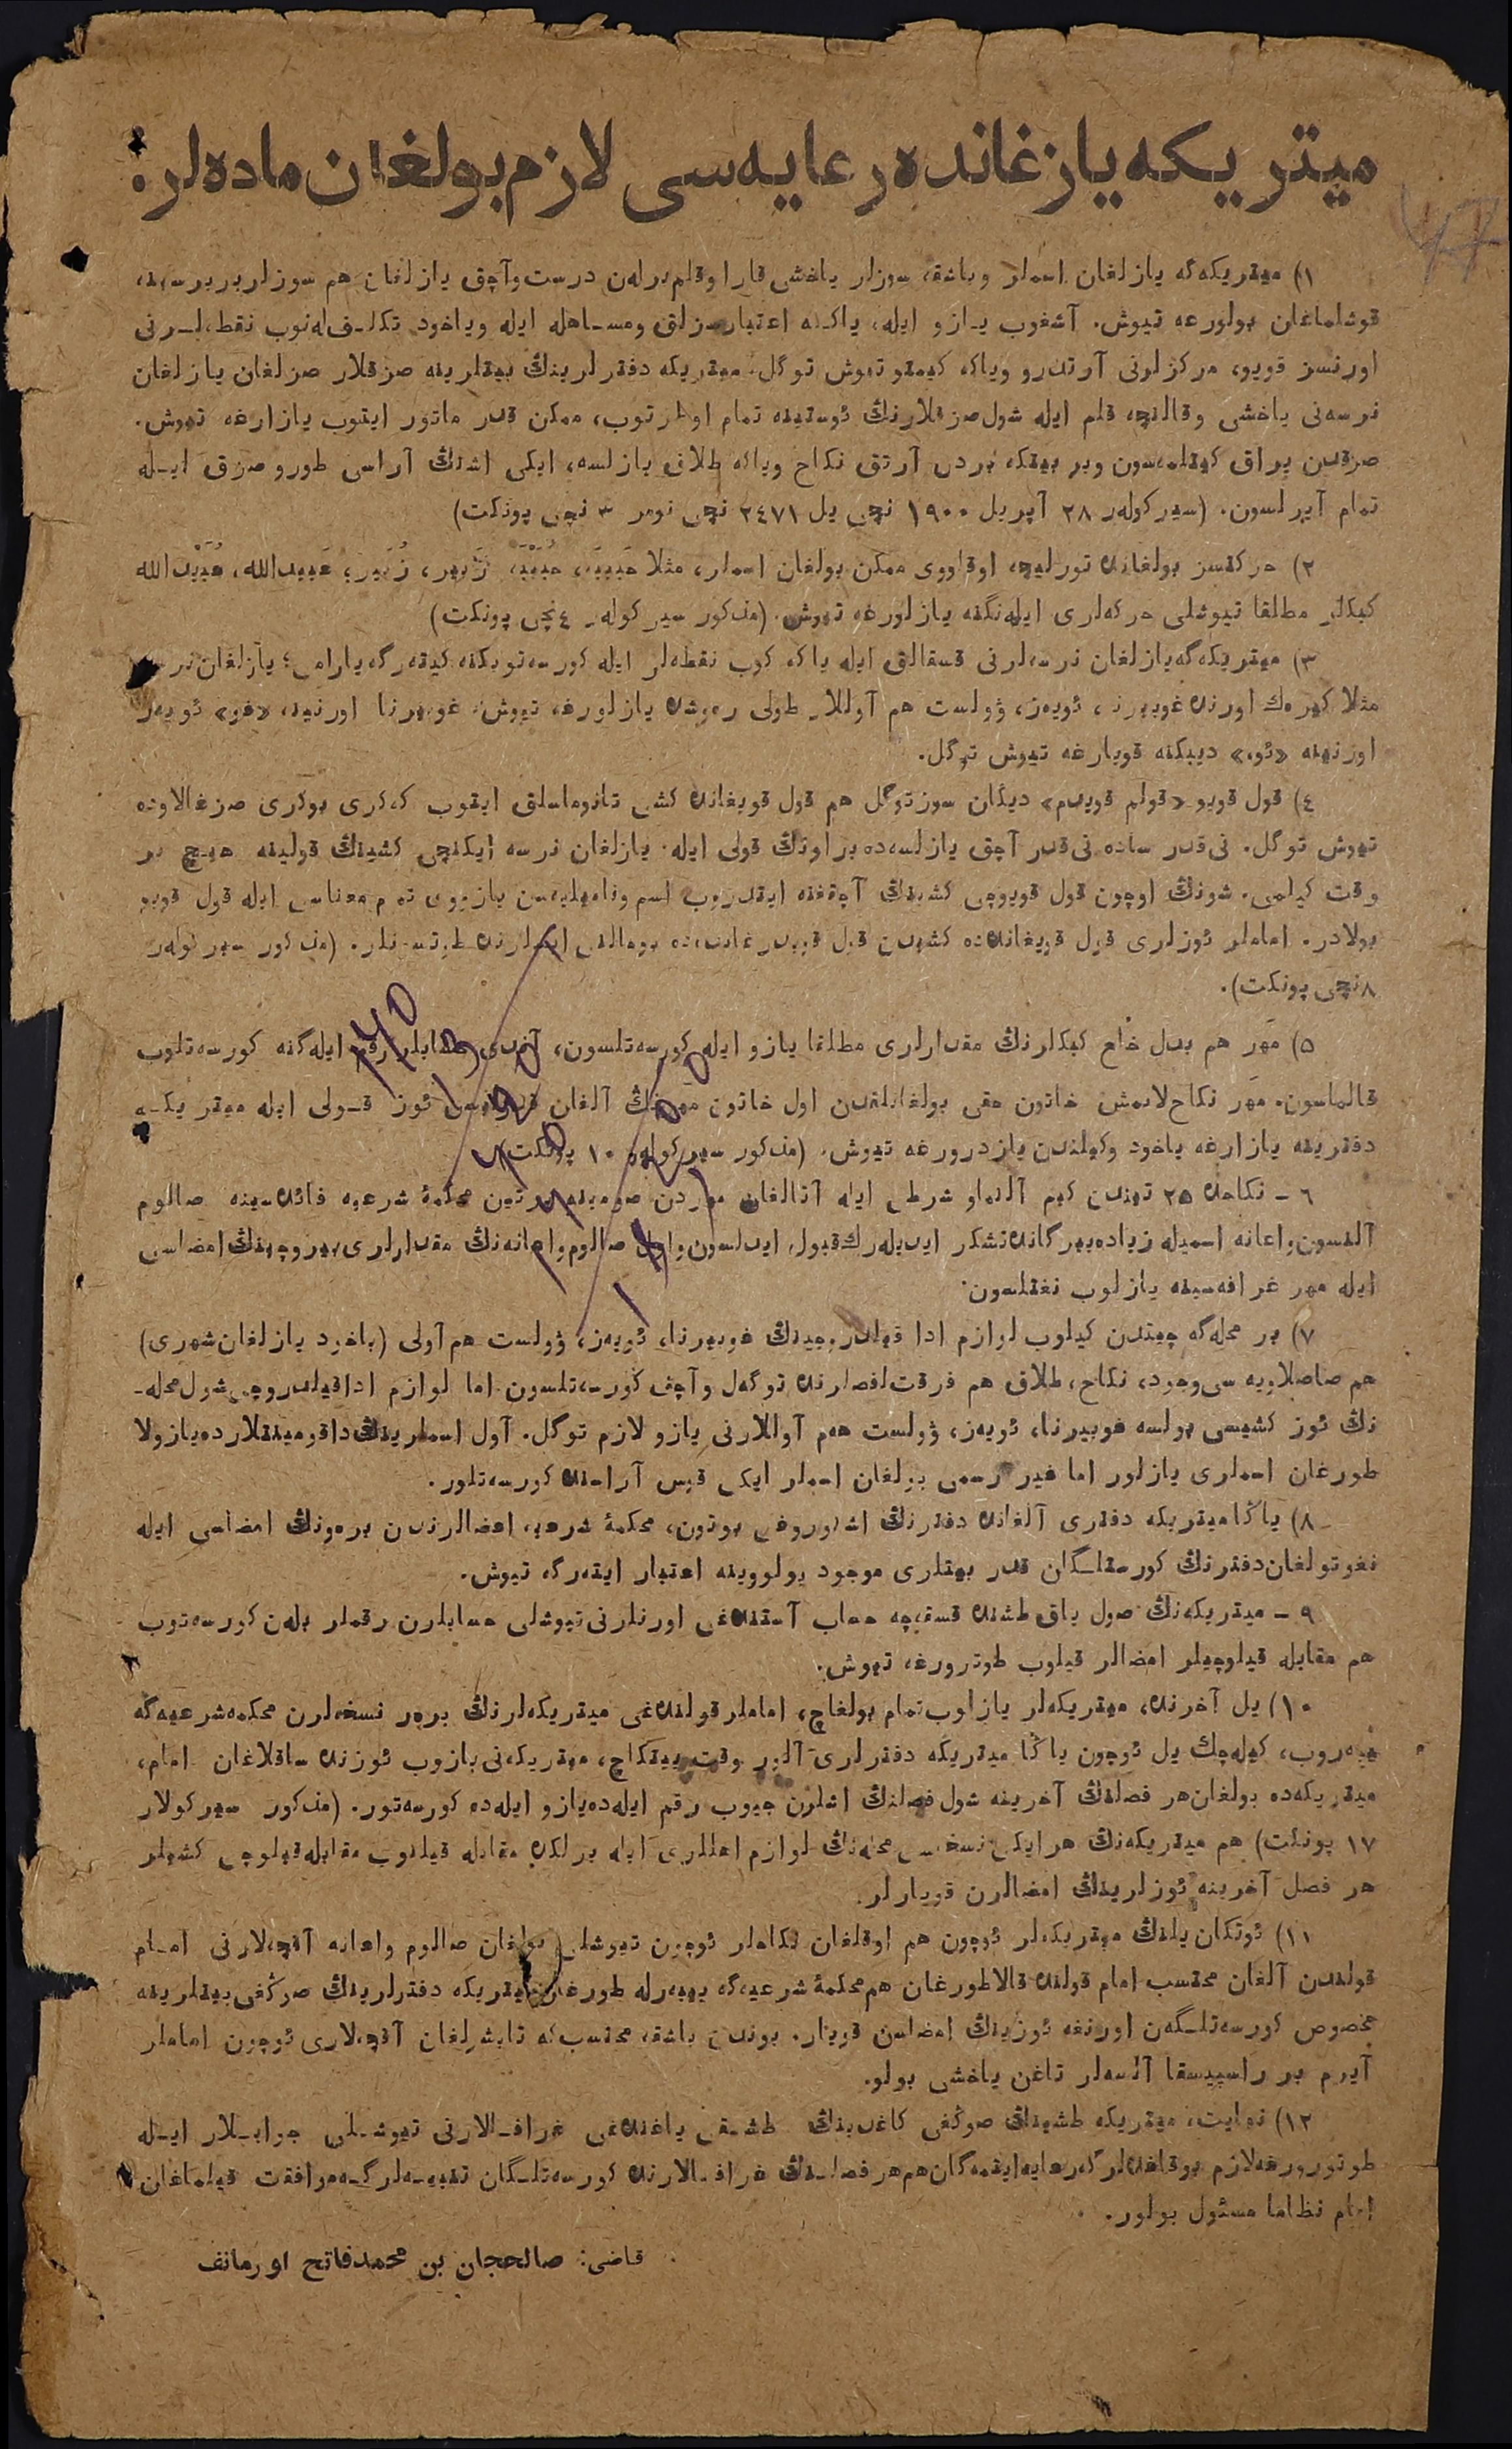 میتریکه یازغانده رعایه‌سی لازم بولغان ماده‌لر:
١) میتریکه‌گه یازلغان اسملر وباشقه سوزلر یاخشی قارا وقلم برله‌ن درست وآچق یازلغان هم سوزلر بربرسینه
قوشلماغان بولورعه تیوش. آشغوب یازو ایله، یاکـه اعتبارسزلق ومساهله ایله ویاخود تکلف‌له‌نوب نقطه‌لـرنی
اورنسز قویو، مرکزلرنی آرتدرو ویاکه کیمتو تیوش توگل. میتریکه دفترلرینڭ بیتلرینه صزقلار صزلغان یازلغان
نرسه‌نی یاخشی وقالنچه قلم ایله شول صزقلارنڭ ئوستینه تمام اولرتوب، ممکن قدر ماتور ایتوب یازارغه تیوش.
صزقدن یراق کیتلمه‌سون وبر بیتکه بردن آرتق نکاح ویاکه طلاق یازلسه، ایکی اشنڭ آراسی طورو صزق ایـله
تمام آیرلسون. (سیرکوله‌ر ٢٨ آپریل ١٩٠٠ نچی یل ٢٤٧١ نچی نومر ٣ نچی پونکت)
٢) حرکتسز بولغانده تورلیچه اوقلووی ممکن بولغان اسملر، مثلا حَبیبَه، حُبَیْبَه، زَبیر، زُبَیر، عَبیدالله، عُبَیْدالله
کبکلر مطلقا تیوشلی حرکه‌لری ایله‌نگنه یازلورغه تیوش. (مذکور سیرکوله‌ر ٤ نچی پونکت)
٣) میتریکه‌گه یازلغان نرسه‌لرنی قسقالق ایله یاکه کوب نقطه‌لر ایله کورسه‌توبکنه کیته‌رگه یارامی؛ یازلغان نرسه
مثلا کیره‌ك اورنده غوبیرنا، ئویه‌ز، ۋولست هم آوللار طولی ره‌وشده یازلورغه تیوش. غوبیرنا اورنینه «غو» ئویه‌ز
اورنینه «ئو.» دیبکنه قویارغه تیوش توگل.
٤) قول قویو «قولم قویدم» دیگان سوز توگل هم قول قویغانده کشی تانوماسلق ایتوب که‌کری بوکری صزغالاوده
تیوش توگل. نی‌قدر ساده نی‌قدر آچق یازلسه‌ده براونڭ قولی ایله یازلغان نرسه ایکنچی کشینڭ قولینه هیچ بر
وقت کیلمی. شونڭ اوچون قول قویوچی کشینڭ آچقغنه ایتدروب اسم وفامیلیه‌سن یازووی تمام معناسی ایله قول قویو
بولادر. اماملر ئوزلری قول قویغانده‌ده کشیدن قول قویدرغانده‌ده بومالنی ایسلرنده طوتسونلر. (مذکور سیرکوله‌ر
٨ نچی پونکت).
٥) مهر هم بدل خلع کبکلرنڭ مقدارلری مطلقا یازو ایله کورسه‌تلسون، رقم ایله‌گنه کورسه‌تلوب
قالماسون. مهر نکاح‌لانمش خاتون حقی بولغانلقدن اول خاتون مهرنڭ آلغان ئوز قـولی ایله میتریکـه
دفترینه یازارغه یاخود وکیلندن یازدرورغه تیوش. (مذکور سیرکوله‌ر ١٠ پونکت)
٦ ـ نکاحده ٢٥ تیندن کیم آلنماو شرطی ایله آتالغان مهردن صومینه برتین محکمهٔ شرعیه فائده‌سینه صالوم
آلنسون واعانه اسمیله زیاده بیرگانده تشکر ایدیله‌رك قبول ایدلسون واول صالوم واعانه‌نڭ مقدارلری بیروچینڭ امضاسی
ایله مهر غرافه‌سینه یازلوب نغتلسون.
٧) بر محله‌گه چیتدن کیلوب لوازم ادا قیلدروچینڭ غوبیرنا، ئویه‌ز، ۋولست هم آولی (یاخود یازلغان شهری)
هم صاصلاویه سی وجود، نکاح، طلاق هم فرقت‌لفصلرنده توگه‌ل وآچق کورسه‌تلسون اما لوازم اداقیلدروچی شول محله‌ـ
نڭ ئوز کشیسی بولسه غوبیرنا، ئویه‌ز، ۋولست هه‌م آوللارنی یازو لازم توگل. آول اسملرینڭ داقومینتلارده یازولا
طورغان اسملری یازلور اما غیر رسمی بولغان اسملر ایکی قوس آراسنده کورسه‌تلور.
٨) یاڭا میتریکه دفتری آلغانده دفترنڭ اشلوروغی بوتون، محکمهٔ شرعیه اعضالرندن بره‌ونڭ امضاسی ایله
نغوتولغان دفترنڭ کورستلـگان قدر بیتلری موجود بولووینه اعتبار ایته‌رگه تیوش.
٩ ـ میتریکه‌نڭ صول یاق طشنده قسقیچه حساب آستنده‌غی اورنلرنی تیوشلی حسابلرن رقملر بله‌ن کورسه‌توب
هم مقابله قیلوچیلر امضالر قیلوب طوترورغه تیوش.
١٠) یل آخرنده، میتریکه‌لر یازلوب تمام بولغاچ، اماملر قولنده‌غی میتریکه‌لرنڭ بره‌ر نسخه‌لرن محکمه شرعیه‌گه
یبه‌روب، کیله‌چك یل ئوچون یاڭا میتریکه دفترلری آلور وقت ییتکاچ، میتریکه‌نی یازوب ئوزنده ساقلاغان امام،
میتریکه‌ده بولغان هر فصلنڭ آخرینه شول فصلنڭ اشلرن جیوب رقم ایله‌ده یازو ایله‌ده کورسه‌تور. (مذکور سیرکولار
١٧ پونکت) هم میتریکه‌نڭ هر ایکی نسخه‌سی محله‌نڭ لوازم اهللری ایله برلکده مقابله قیلنوب مقابله قیلوچی کشیلر
هر فصل آخرینه ئوزلرینڭ امضالرن قویارلر.
١١) ئوتکان یلنڭ میتریکه‌لر ئوچون هم اوقلغان نکاحلر ئوچون تیوشلی بولغان صالوم واعانه آقچه‌لارنی امـام
قولندن آلغان محتسب امام قولنده قالاطورغان هم محکمهٔ شرعیه‌گه یبیه‌رله طورغان میتریکه دفترلرینڭ صوڭغی بیتلرینه
مخصوص کورسه‌تلـگه‌ن اورنغه ئوزینڭ امضاسن قویار. بوندن باشقه محتسب‌که تابشرلغان آقچه‌لاری ئوچون اماملر
آیرم بر راسپیسقا آلسه‌لر تاغن یاخشی بولو.
١٢) نهایت، میتریکه طشینڭ صوڭغی کاغدینڭ طشـقی یاغنده‌غی غرافـالارنی تیوشـلی جوابـلار ایـله
طوتورورغه لازم بوقاغده‌لرگه رعایه‌ایتمه‌گان هم هر فصلـنڭ غرافـالارنده کورسه‌تلـگان تنبیـه‌لرگـه موافقت قیلماغان
امام نظاما مسئول بولور.
قاضی: صالحجان بن محمدفاتح اورمانف